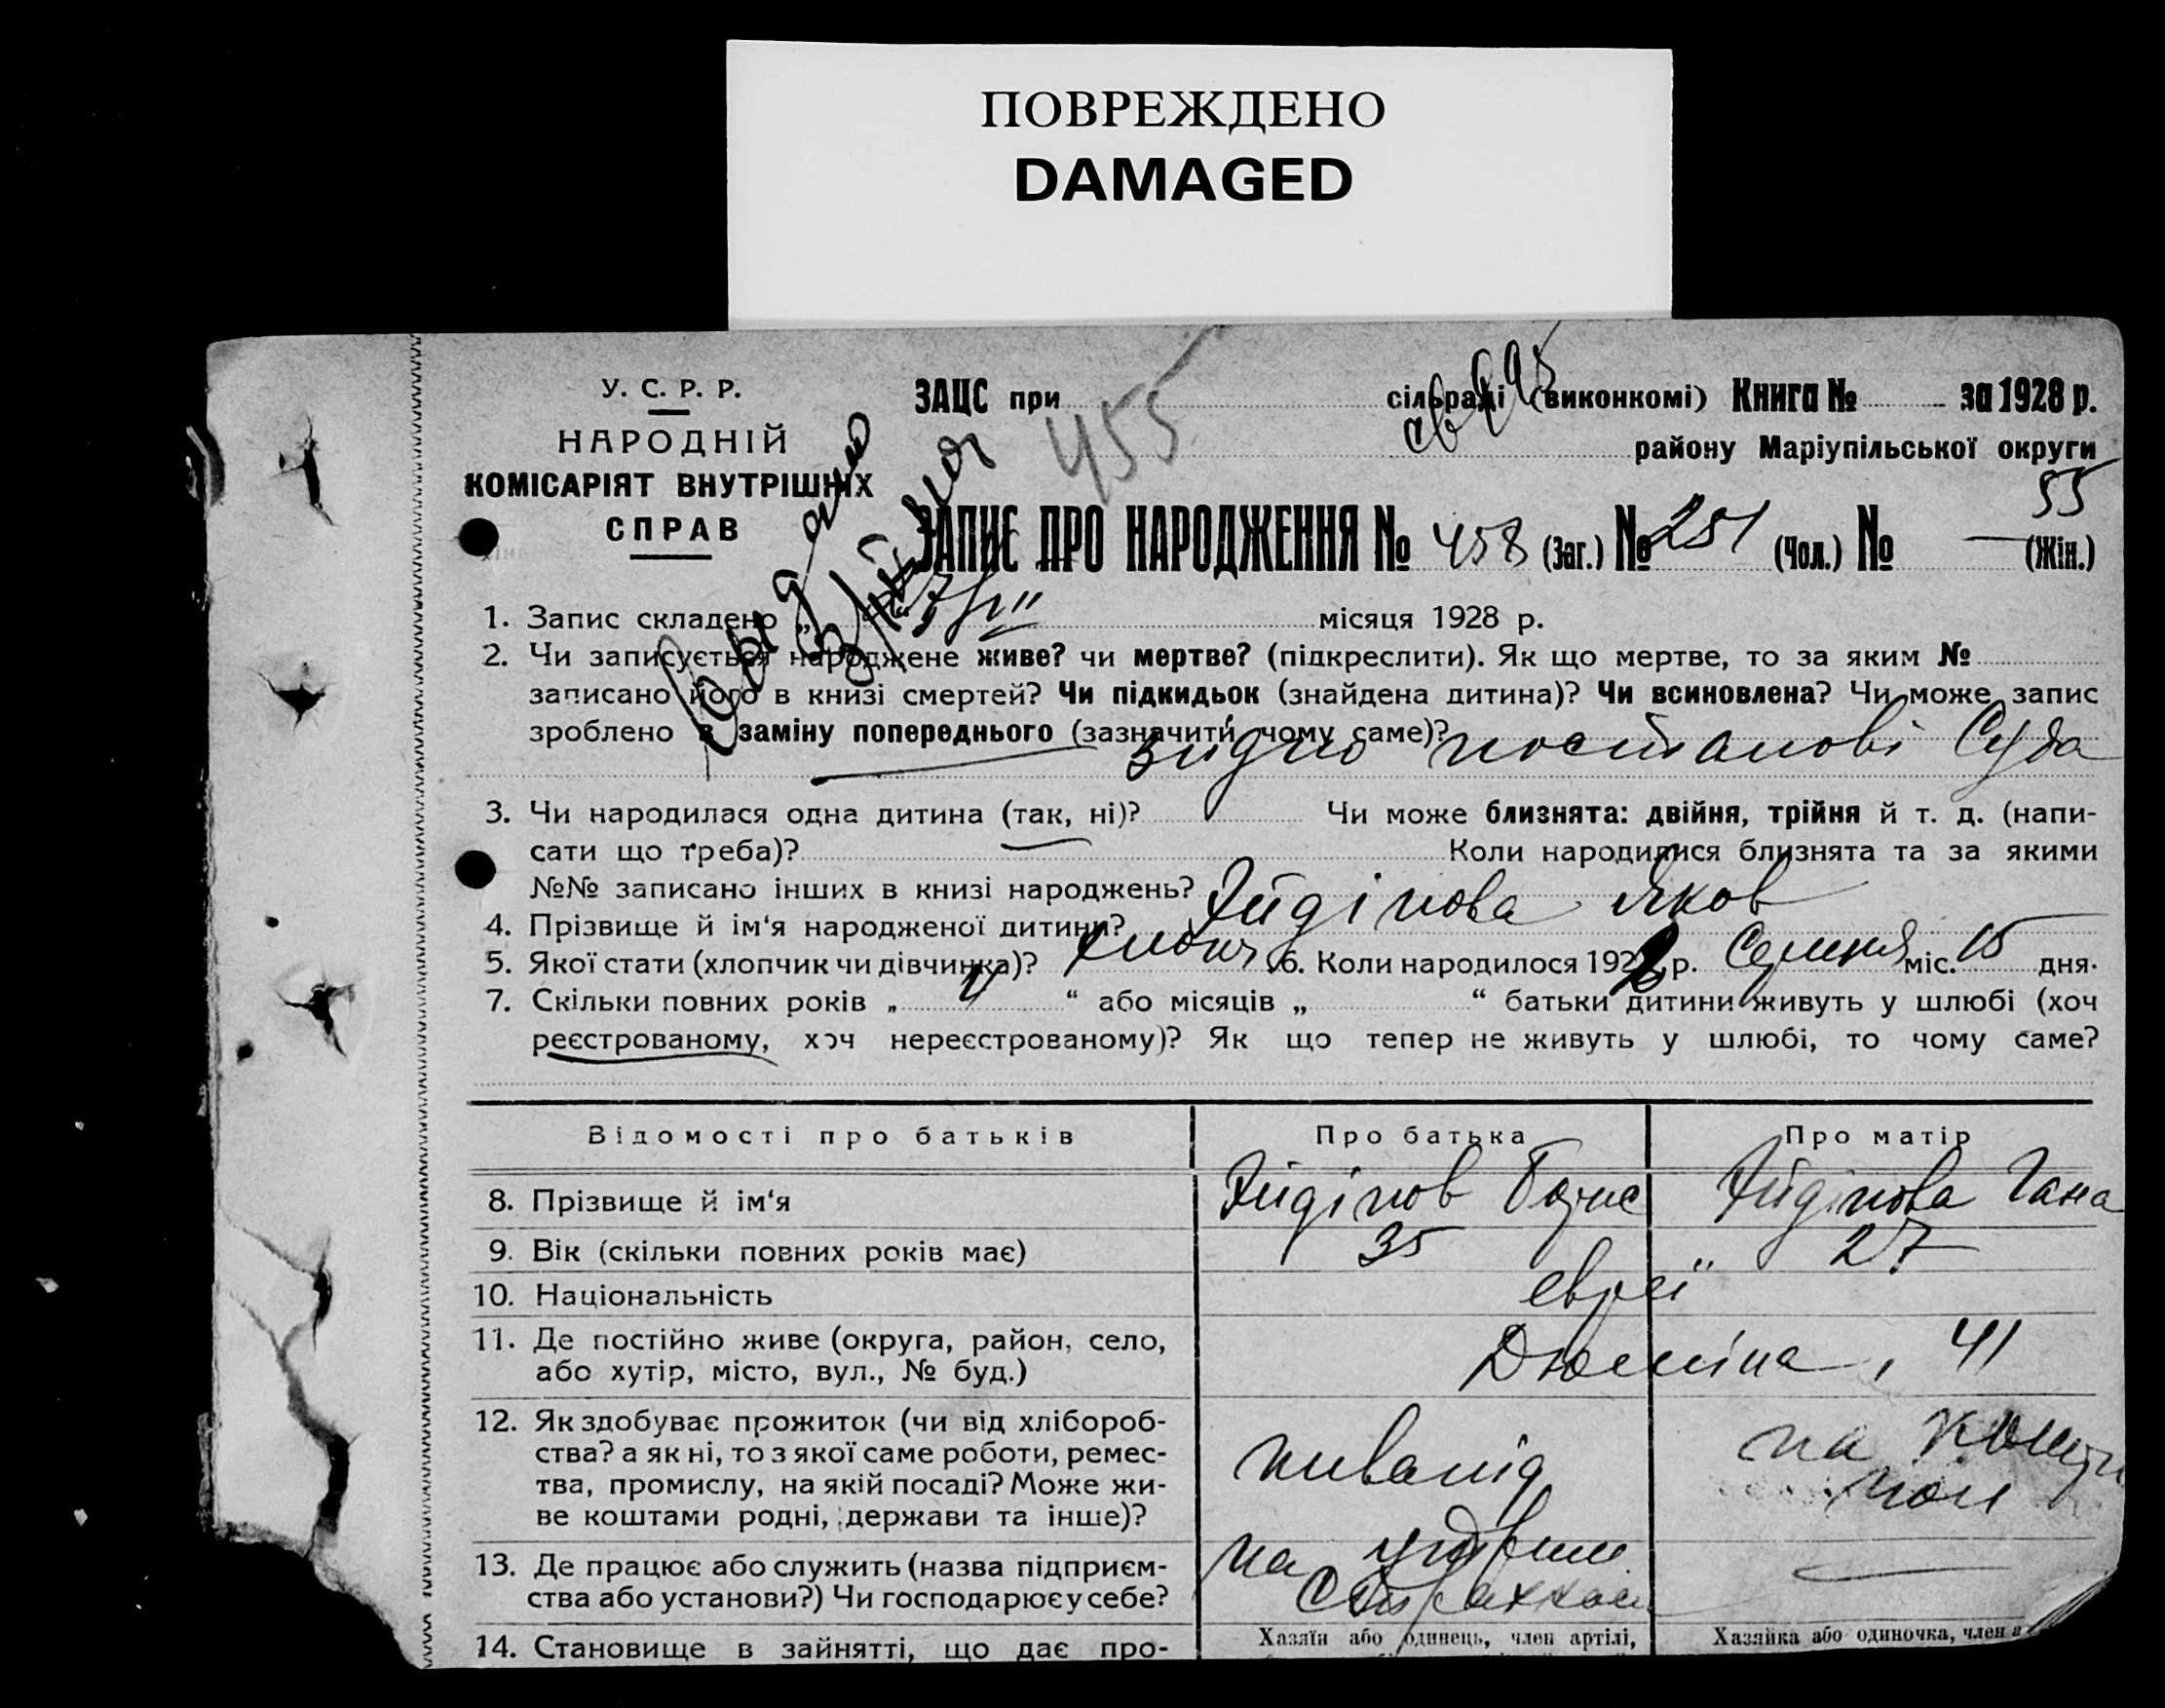 ПОВРЕЖДЕНО
DAMAGED
У. С. Р. Р.
НАРОДНІЙ
КОМІСАРІЯТ ВНУТРІШНІХ
СПРАВ
ЗАЦС при сільраді (виконкомі) Книга № за 1928 р.
455
району Маріупільської округи
55
ЗАПИС ПРО НАРОДЖЕННЯ № 458 (Заг.) № 251 (Чол.) № — (Жін.)
1. Запис складено „ 7/VII місяця 1928 р.
2. Чи записується народжене живе? чи мертве? (підкреслити). Як що мертве, то за яким №
записано його в книзі смертей? Чи підкидьок (знайдена дитина)? Чи всиновлена? Чи може запис
зроблено в заміну попереднього (зазначити, чому саме)?
згідно постанові Суда
3. Чи народилася одна дитина (так, ні)? Чи може близнята: двійня, трійня й т. д. (напи-
сати що треба)? Коли народилися близнята та за якими
№№ записано інших в книзі народжень?
4. Прізвище й ім‘я народженої дитини? Яков
5. Якої стати (хлопчик чи дівчинка)? хлопч 6. Коли народилося 192 р. Серпня міс. 15 дня.
7. Скільки повних років „ 4 “ або місяців „ “ батьки дитини живуть у шлюбі (хоч
реєстрованому, хоч нереєстрованому)? Як що тепер не живуть у шлюбі, то чому саме?
Відомості про батьків Про батька Про матір
8. Прізвище й ім‘я Борис Гана
9. Вік (скільки повних років має) 35 27
10. Національність євреї
11. Де постійно живе (округа, район, село,
або хутір, місто, вул., № буд.)
41
12. Як здобуває прожиток (чи від хлібороб-
ства? а як ні, то з якої саме роботи, ремес-
тва, промислу, на якій посаді? Може жи-
ве коштами родні, держави та інше)?
інвалід
на
13. Де працює або служить (назва підприєм-
ства або установи?) Чи господарює у себе?
на
—
14. Становище в зайнятті, що дає про-
Хазяїн або одинець, член артілі,
Хазяйка або одиночка, член а